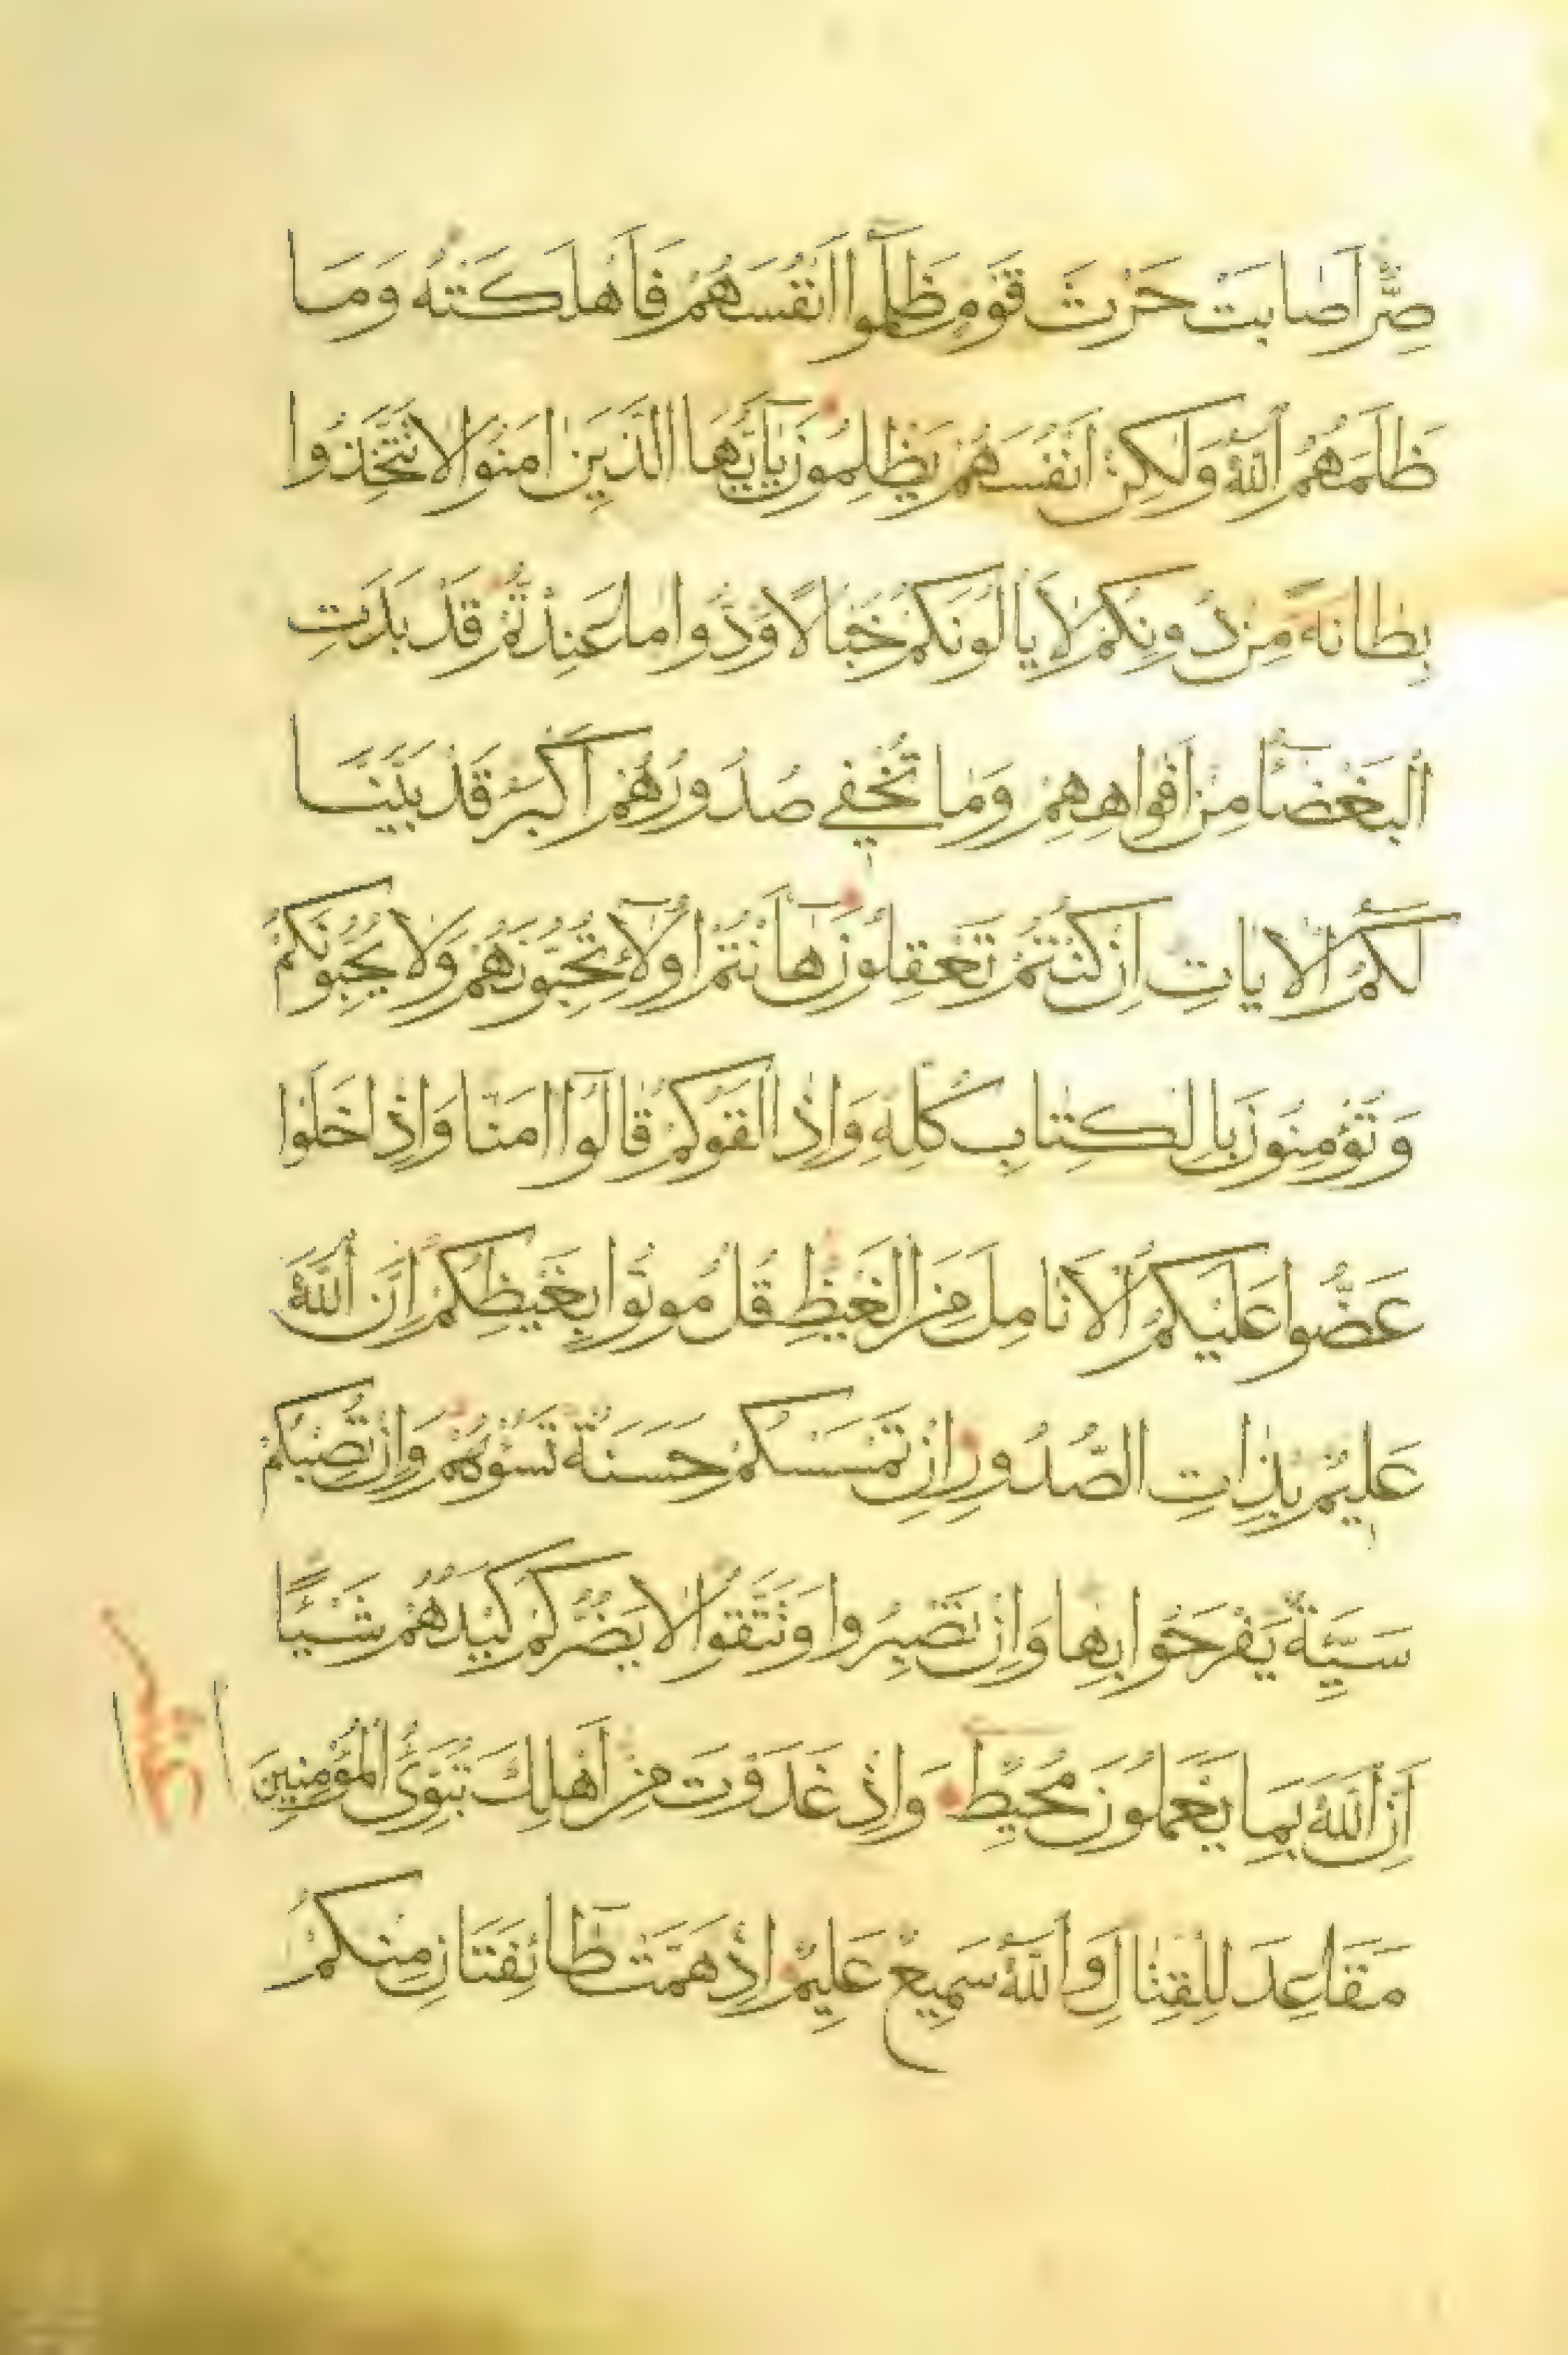 صِرٌّ اَصَابَتْ حَرْثَ قَوْمٍ ظَلَمُٓوا اَنْفُسَهُمْ فَاَهْلَكَتْهُ وَمَا
ظَلَمَهُمُ اللّٰهُ وَلٰكِنْ اَنْفُسَهُمْ يَظْلِمُونَ يَٓا اَيُّهَا الَّذِينَ اٰمَنُوا لَا تَتَّخِذُوا
بِطَانَةً مِنْ دُونِكُمْ لَا يَاْلُونَكُمْ خَبَالًا وَدُّوا مَا عَنِتُّمْ قَدْ بَدَتِ
الْبَغْضَٓاءُ مِنْ اَفْوَاهِهِمْ وَمَا تُخْفِي صُدُورُهُمْ اَكْبَرُ قَدْ بَيَّنَّا
لَكُمُ الْاٰيَاتِ اِنْ كُنْتُمْ تَعْقِلُونَ هَٓا اَنْتُمْ اُولَٓاءِ تُحِبُّونَهُمْ وَلَا يُحِبُّونَكُمْ
وَتُؤْمِنُونَ بِالْكِتَابِ كُلِّهِ وَاِذَا لَقُوكُمْ قَالُٓوا اٰمَنَّا وَاِذَا خَلَوْا
عَضُّوا عَلَيْكُمُ الْاَنَامِلَ مِنَ الْغَيْظِ قُلْ مُوتُوا بِغَيْظِكُمْ اِنَّ اللّٰهَ
عَلِيمٌ بِذَاتِ الصُّدُورِ اِنْ تَمْسَسْكُمْ حَسَنَةٌ تَسُؤْهُمْ وَاِنْ تُصِبْكُمْ
سَيِّئَةٌ يَفْرَحُوا بِهَا وَاِنْ تَصْبِرُوا وَتَتَّقُوا لَا يَضُرُّكُمْ كَيْدُهُمْ شَيْئًا
اِنَّ اللّٰهَ بِمَا يَعْمَلُونَ مُحِيطٌ وَاِذْ غَدَوْتَ مِنْ اَهْلِكَ تُبَوِّئُ الْمُؤْمِنِينَ
مَقَاعِدَ لِلْقِتَالِ وَاللّٰهُ سَمِيعٌ عَلِيمٌ اِذْ هَمَّتْ طَٓائِفَتَانِ مِنْكُمْ